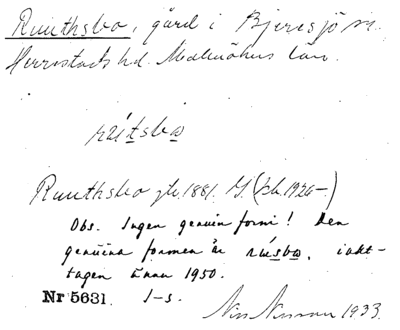 Ruuthsbo, gård i Bjeresjö sn.
Herrestads hd. Malmöhus län.
rútsbo
Ruuthsbo jb. 1881. G. (jb. 1926-)
Obs. Ingen genuin form! Den
genuina formen är rúsbo, iakt-
tagen ännu 1950.
Nr 5631. I-s.
1933.